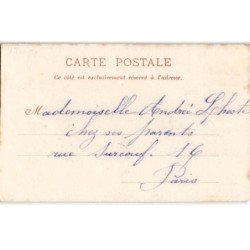 CARTE POSTALE
Ce côté est exclusivement réservé à l'adresse.
Mademoiselle Andrée Lhost
chez ses parents
rue Surcouf. 16
Paris